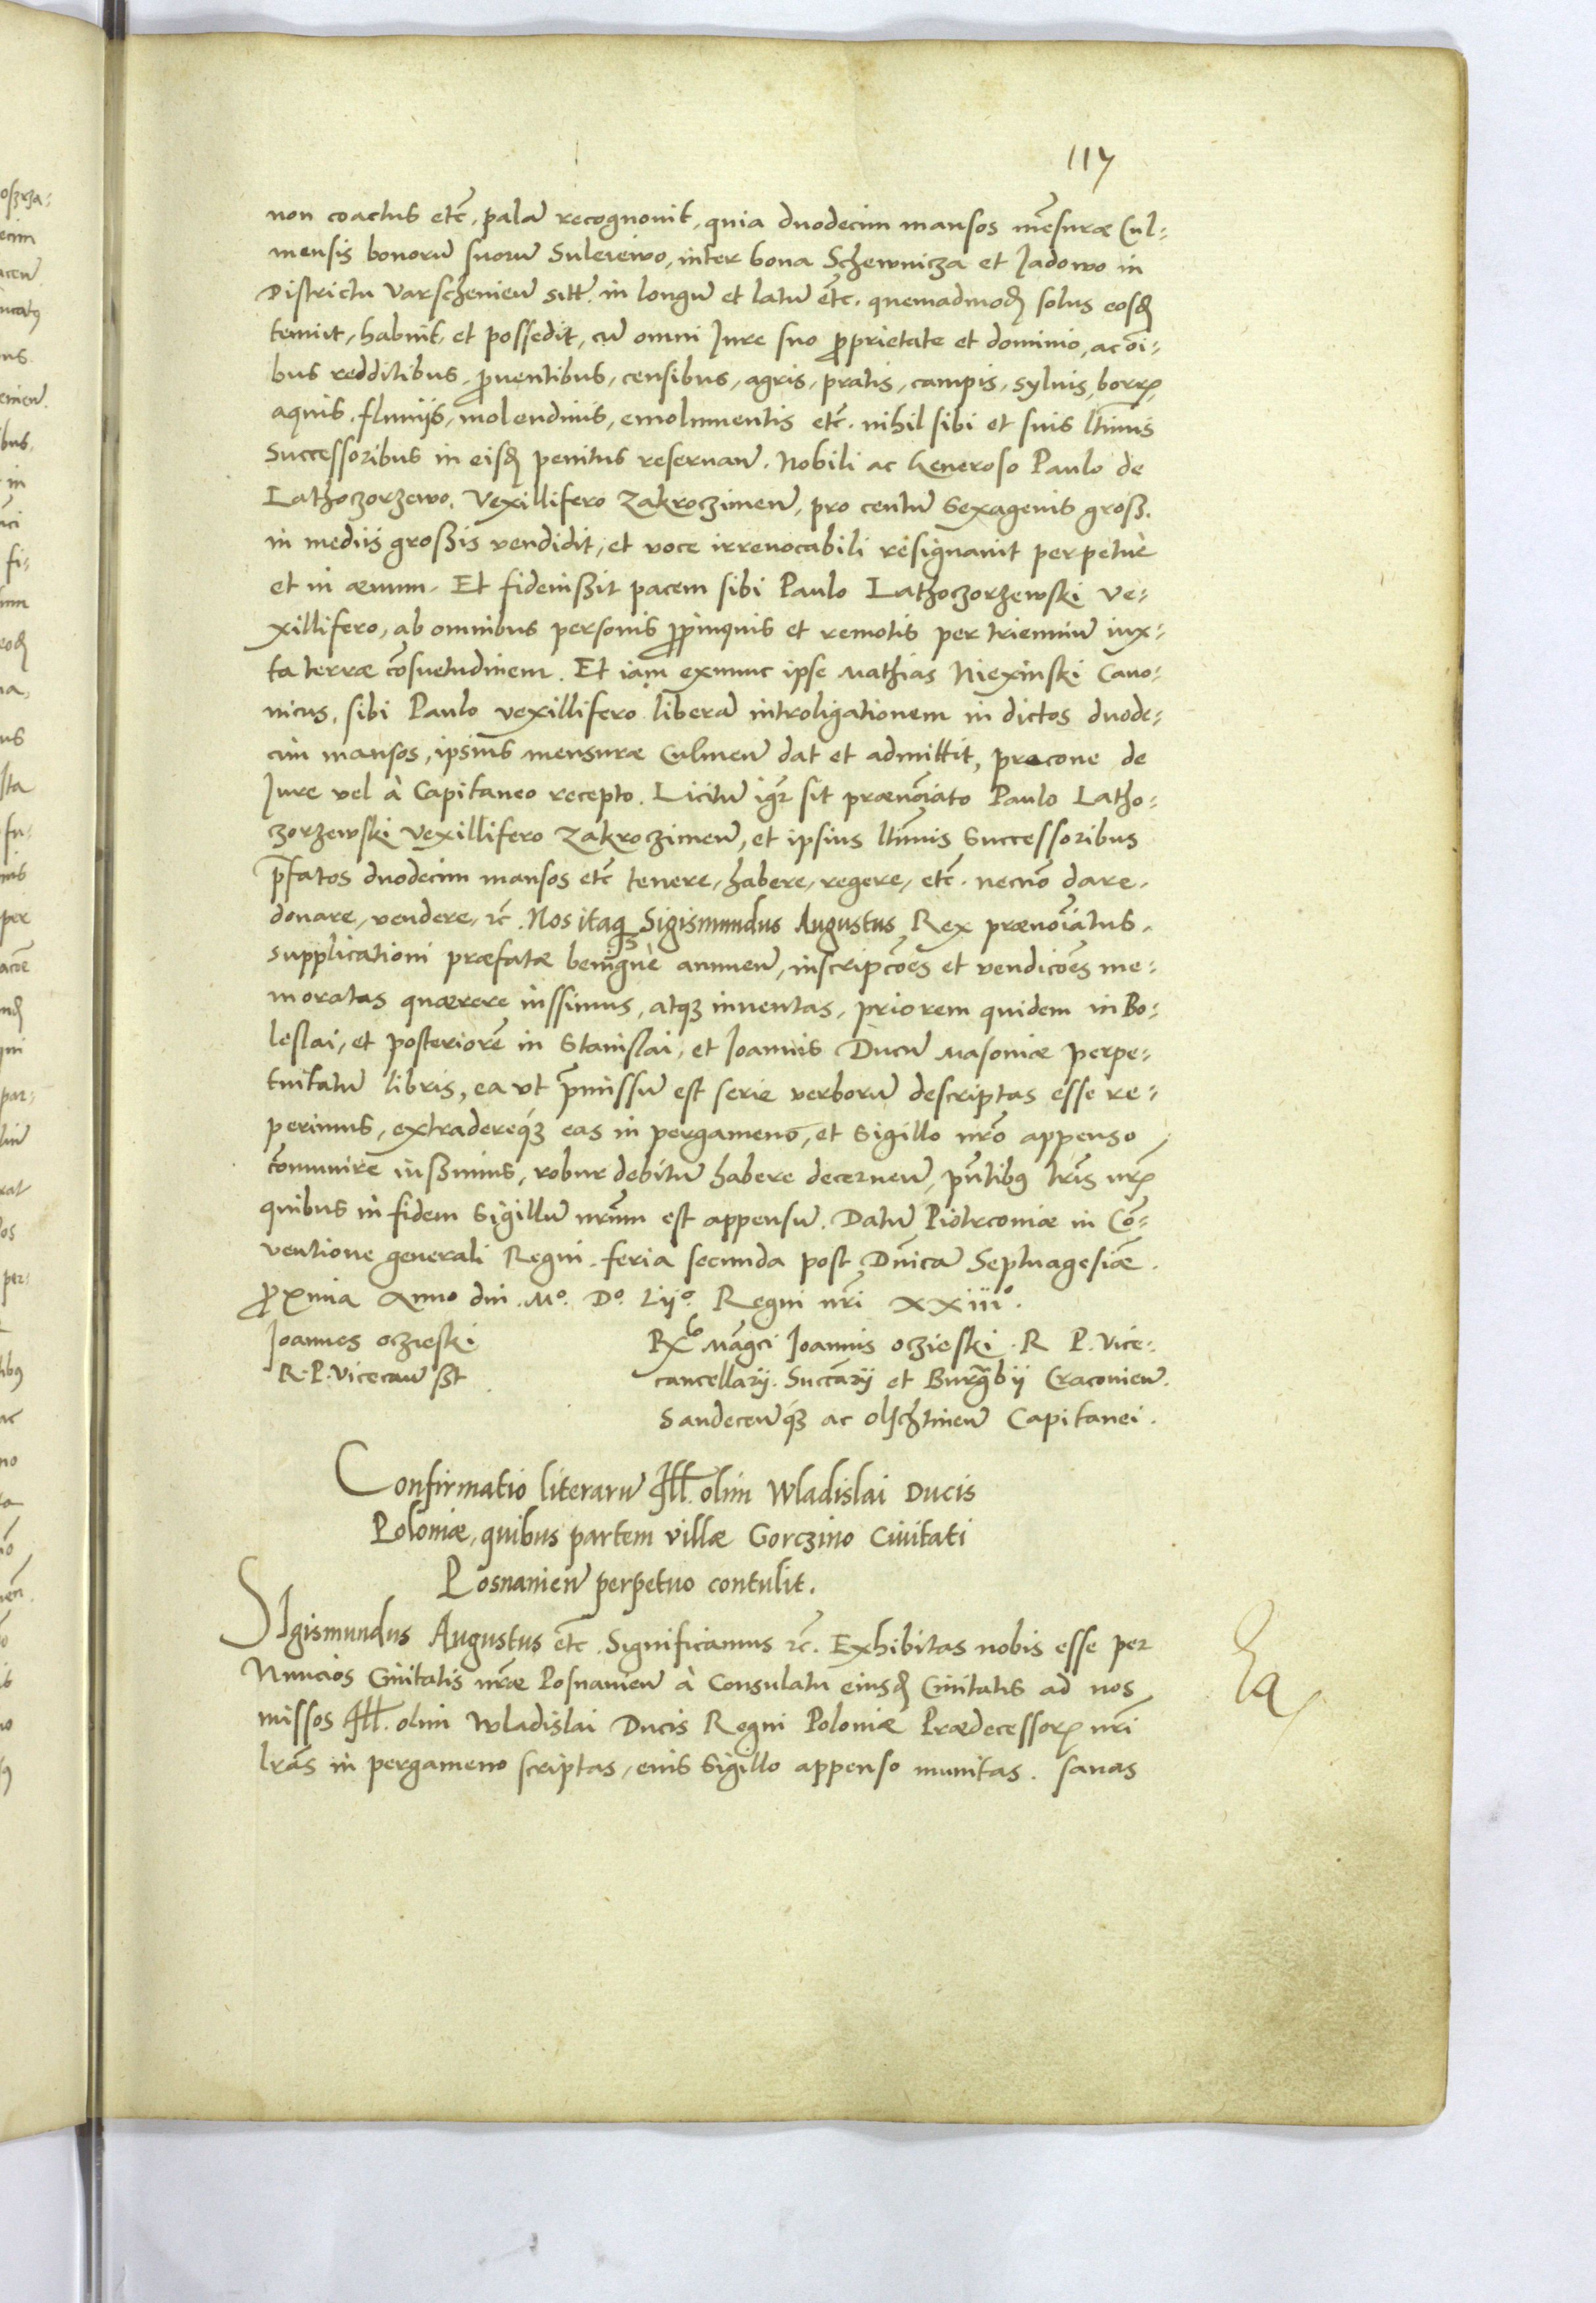 117
non coactus etc̄, palā recognouit, quia duodecim mansos mēsuræ Cul-
mensis bonorū suorū Suleiewo, inter bona Schewnicza et Jadowo in
Districtu Varscheniēn sitt. in longū et latū etc̄. quemadmodū solus eosdē
tenuit, habuit, et possedit, cū omni Jure suo proprietate et dominio, ac oi-
bus redditibus, prouentibus, censibus, agris, pratis, campis, syluis, borrꝭ
aquis, fluuijs, molendinis, emolumentis etc̄. nihil sibi et suis ltimis
Successoribus in eisdē penitus reseruan̄. Nobili ac Generoso Paulo de
Lathoczorzewo, Vexillifero Zakroczimen̄, pro centū Sexagenis groß.
in medijs großis vendidit, et voce irreuocabili resignauit perpetuè
et in æuum. Et fideiußit pacem sibi Paulo Lathoczorzewski Ve-
xillifero, ab omnibus personis propinquis et remotis per trienniū iux-
ta terræ cōsuetudinem. Et iam exnunc ipse Mathias Niexinski Cano-
nicus, sibi Paulo vexillifero liberā introligationem in dictos duode-
cim mansos, ipsius mensuræ Culmen̄ dat et admittit, præcone de
Jure vel à Capitaneo recepto. Licitū igr̄ sit prænoīato Paulo Latho-
czorzewski Vexillifero Zakroczimen̄, et ipsius ltimis Successoribus
p̄fatos duodecim mansos etc̄ tenere, habere, regere, etc̄. necnō dare,
donare, vendere, ꝛc̄. Nos itaqꝫ Sigismundus Augustus Rex prænoīatus,
supplicationi præfatæ benignè annuen̄, inscripcōes et vendicōes me-
moratas quærere iussimus, atqꝫ inuentas, priorem quidem in Bo-
leslai, et posteriorē in Stanislai, et Joannis Ducū Masoniæ perpe-
tuitatū libris, ea vt p̄missū est serie verborū descriptas esse re-
perimus, extradereqꝫ eas in pergameno, et Sigillo nrō appenso
cōmunire iußimus, robur debitū habere decernen̄, pn̄tibꝰ lrīs nrꝭ
quibus in fidem Sigillū nrūm est appensū. Datū Piotrconiæ in Cō-
uentione generali Regni, feria secunda post Dn̄icā Septuagesiæ
proxima Anno dni. Mº. Dº. Lijº. Regni nrī XXiijº.
Joannes oczieski
R. P. Vicecan̄ ßt
Rº Mag̅ci Joannis oczieski. R P. Vice-
cancellarij. Succārij et Burgrabij Craconien̄.
Sandecen̄qꝫ ac olschtinen̄ Capitanei.
Confirmatio literarū Ill. olim Wladislai Ducis
Poloniæ, quibus partem villæ Gorczino Ciuitati
Posnanien̄ perpetuo contulit.
SIgismundus Augustus etc̄. Significamus ꝛc̄. Exhibitas nobis esse per
Nuncios Ciuitatis nrāe Posnanien̄ à Consulatu eiusdē Ciuitatis ad nos
missos Ill. olim Wladislai Ducis Regni Poloniæ Prædecessorꝭ nrī
lrās in pergameno scriptas, eius Sigillo appenso munitas. sanas